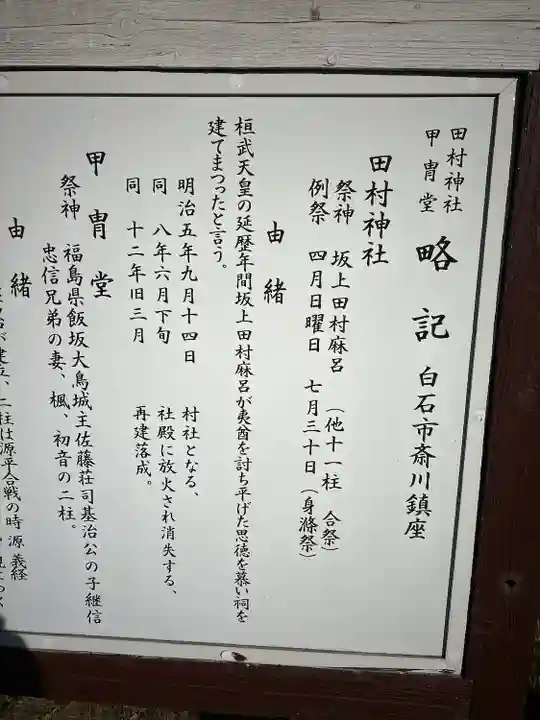 田村神社
甲冑堂
略記 白石市斎川鎮座
田村神社
祭神 坂上田村麻呂 (他十一柱 合祭)
例祭 四月日曜日 七月三十日(身滌祭)
由緒
桓武天皇の延歴年間坂上田村麻呂が夷酋を討ち平げた思徳を慕い祠を
建てまつったと言う。
明治五年九月十四日 村社となる、
同 八年六月下旬 社殿に放火され消失する、
同 十二年旧三月 再建落成。
甲冑堂
祭神 福島県飯坂大鳥城主佐藤荘司基治公の子継信
忠信兄弟の妻、楓、初音の二柱。
由緒
が建立、二柱は源平合戦の時源義経